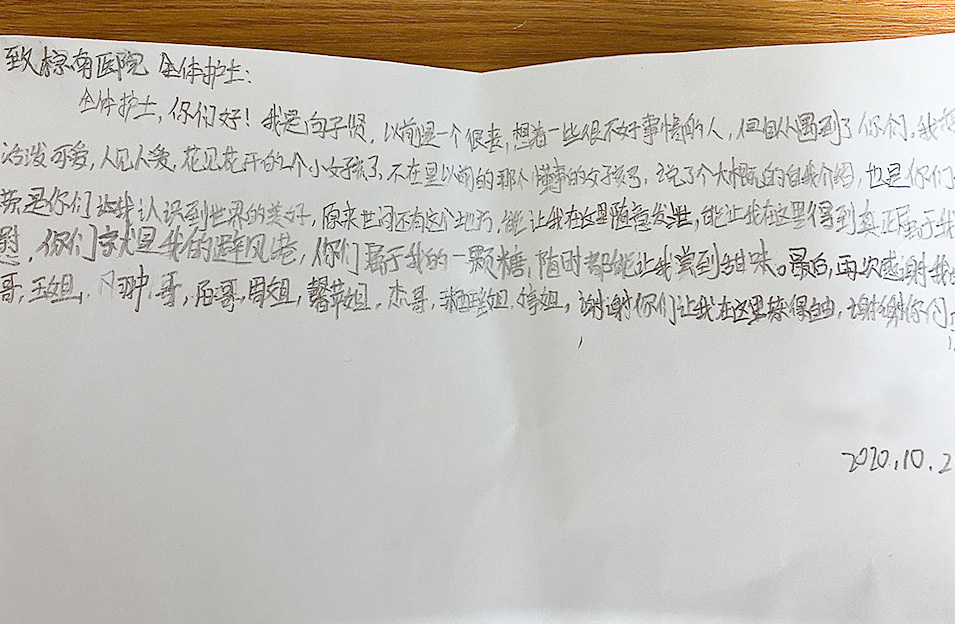 致棕南医院 全体护士:
全体护士,你们好!我是向子贤,以前是一个很丧,想着一些很不好事情的人,但自从遇到了你们,我
活泼可爱,人见人爱,花见花开的一个小女孩了,不在是以前的那个懂事的女孩了,说了个大概的自我介绍,也是你们
是你们让我认识到世界的美好,原来世间还有这个地方,能让我在这里随意发泄,能让我在这里得到真正属于我
慰,你们就是我的避风港,你们属于我的一颗糖,随时都能让我尝到甜味。最后,再次感谢我
哥,王姐,哥,阳哥,周姐,馨苹姐,杰哥,姐,婷姐,谢谢你们让我在这里获得自由,谢谢你们
2020.10.2